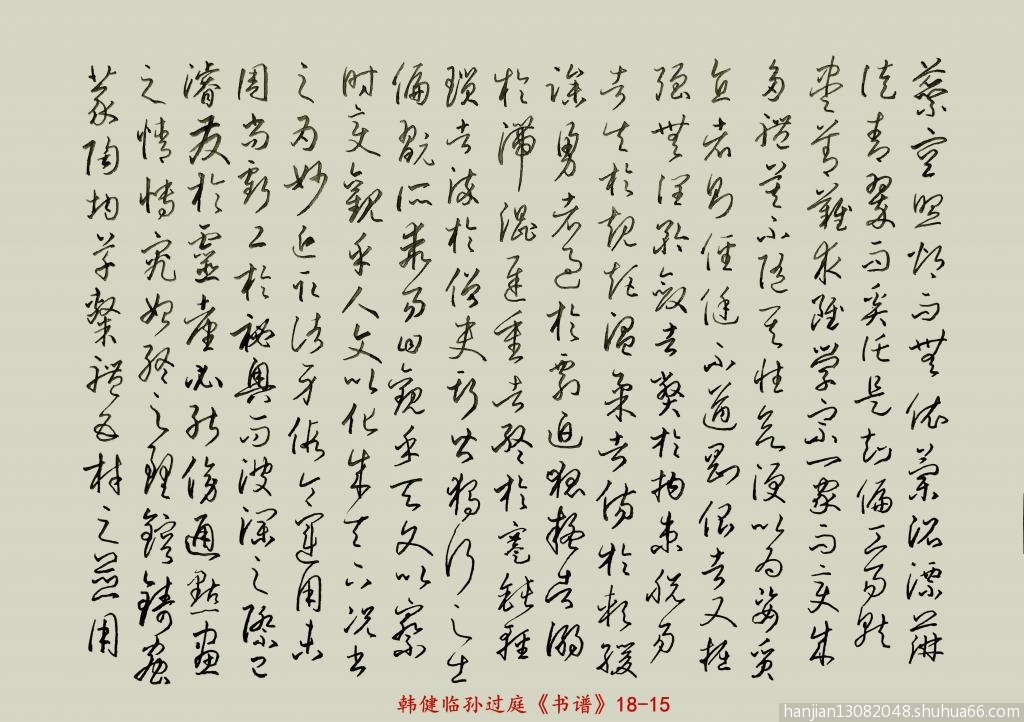 蕊空照灼而無依蘭沼漂蓱
徒青翠而奚托是知偏工易就
盡善難求雖學宗一家而變成
多體莫不隨其性欲便以為姿質
直者則俓侹不遒剛佷者又倔
强無潤矜斂者弊於拘束脫易
者失於規矩溫柔者傷於軟緩
躁勇者過於剽迫狐疑者溺
於滯澀遲重者終於蹇鈍輕
瑣者染於俗吏斯皆獨行之士
偏翫所乖易曰觀乎天文以察
時變觀乎人文以化成天下況書
之為妙近取諸身假令運用未
周尚虧工於秘奧而波瀾之際已
濬發於靈臺必能傍通點畫
之情博究始終之理鎔鑄蟲
篆陶均草隸體五材之並用
韩健临孙过庭《书谱》18-15
hanjian13082048.shuhua66.com